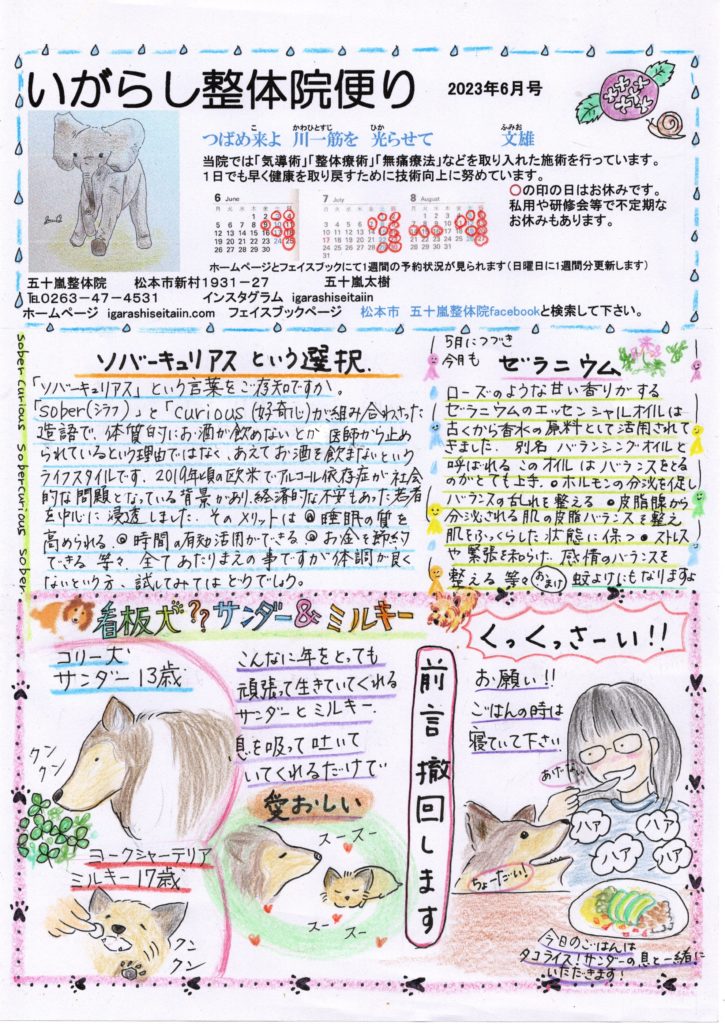 いがらし整体院便り 2023年6月号
つばめ来よ 川一筋を 光らせて 文雄
当院では「気導術」「整体療術」「無痛療法」などを取り入れた施術を行っています。
1日でも早く健康を取り戻すために技術向上に努めています。
6 June
7 July
8 August
○の印の日はお休みです。
私用や研修会等で不定期な
お休みもあります。
ホームページとフェイスブックにて1週間の予約状況が見られます(日曜日に1週間分更新します)
五十嵐整体院 松本市新村1931-27 五十嵐太樹
℡0263-47-4531 インスタグラム igarashiseitaiin
ホームページ igarashiseitaiin.com フェイスブックページ 松本市 五十嵐整体院facebookと検索して下さい。
sober curious sober curious sober
ソバーキュリアス という選択.
「ソバーキュリアス」という言葉をご存知ですか。
「sober(シラフ)」と「curious(好奇心)が組み合わさった
造語で、体質的にお酒が飲めないとか 医師から止め
られているという理由ではなく、あえてお酒を飲まないという
ライフスタイルです. 2019年頃の欧米でアルコール依存症が社会
的な問題となっている背景があり、経済的な不安もあった若者
を中心に 浸透しました. そのメリットは ◎睡眠の質を
高められる. ◎時間の有効活用ができる ◎お金を節約
できる 等々. 全てあたりまえの事ですが体調が良く
ないという方、試してみてはどうでしょう.
5月につづき
今月も
ゼラニウム
ローズのような甘い香りがする
ゼラニウムのエッセンシャルオイルは
古くから香水の原料として活用されて
きました. 別名 バランシングオイルと
呼ばれるこのオイルはバランスをとる
のがとても上手. ◎ホルモンの分泌を促し
バランスの乱れを整える ◎皮脂腺から
分泌される肌の皮脂バランスを整え
肌をふっくらした状態に保つ ◎ストレス
や緊張を和らげ、感情のバランスを
整える 等々 おまけ 蚊よけにもなりますよ
看板犬?? サンダー& ミルキー
コリー犬
サンダー 13歳
クン
クン
ヨークシャーテリア
ミルキー 17歳
クン
クン
こんなに年をとっても
頑張って生きていてくれる
サンダーとミルキー.
息を吸って吐いて
いてくれるだけで
愛おしい
スースー
スー
スー
前言撤回します
くっくっさーい!!
お願い!!
ごはんの時は
寝ていて下さい
あげない
ハァ
ハァ
ハァ
ハァ
ちょーだい!
今日のごはんは
タコライス!サンダーの息と一緒に
いただきます!